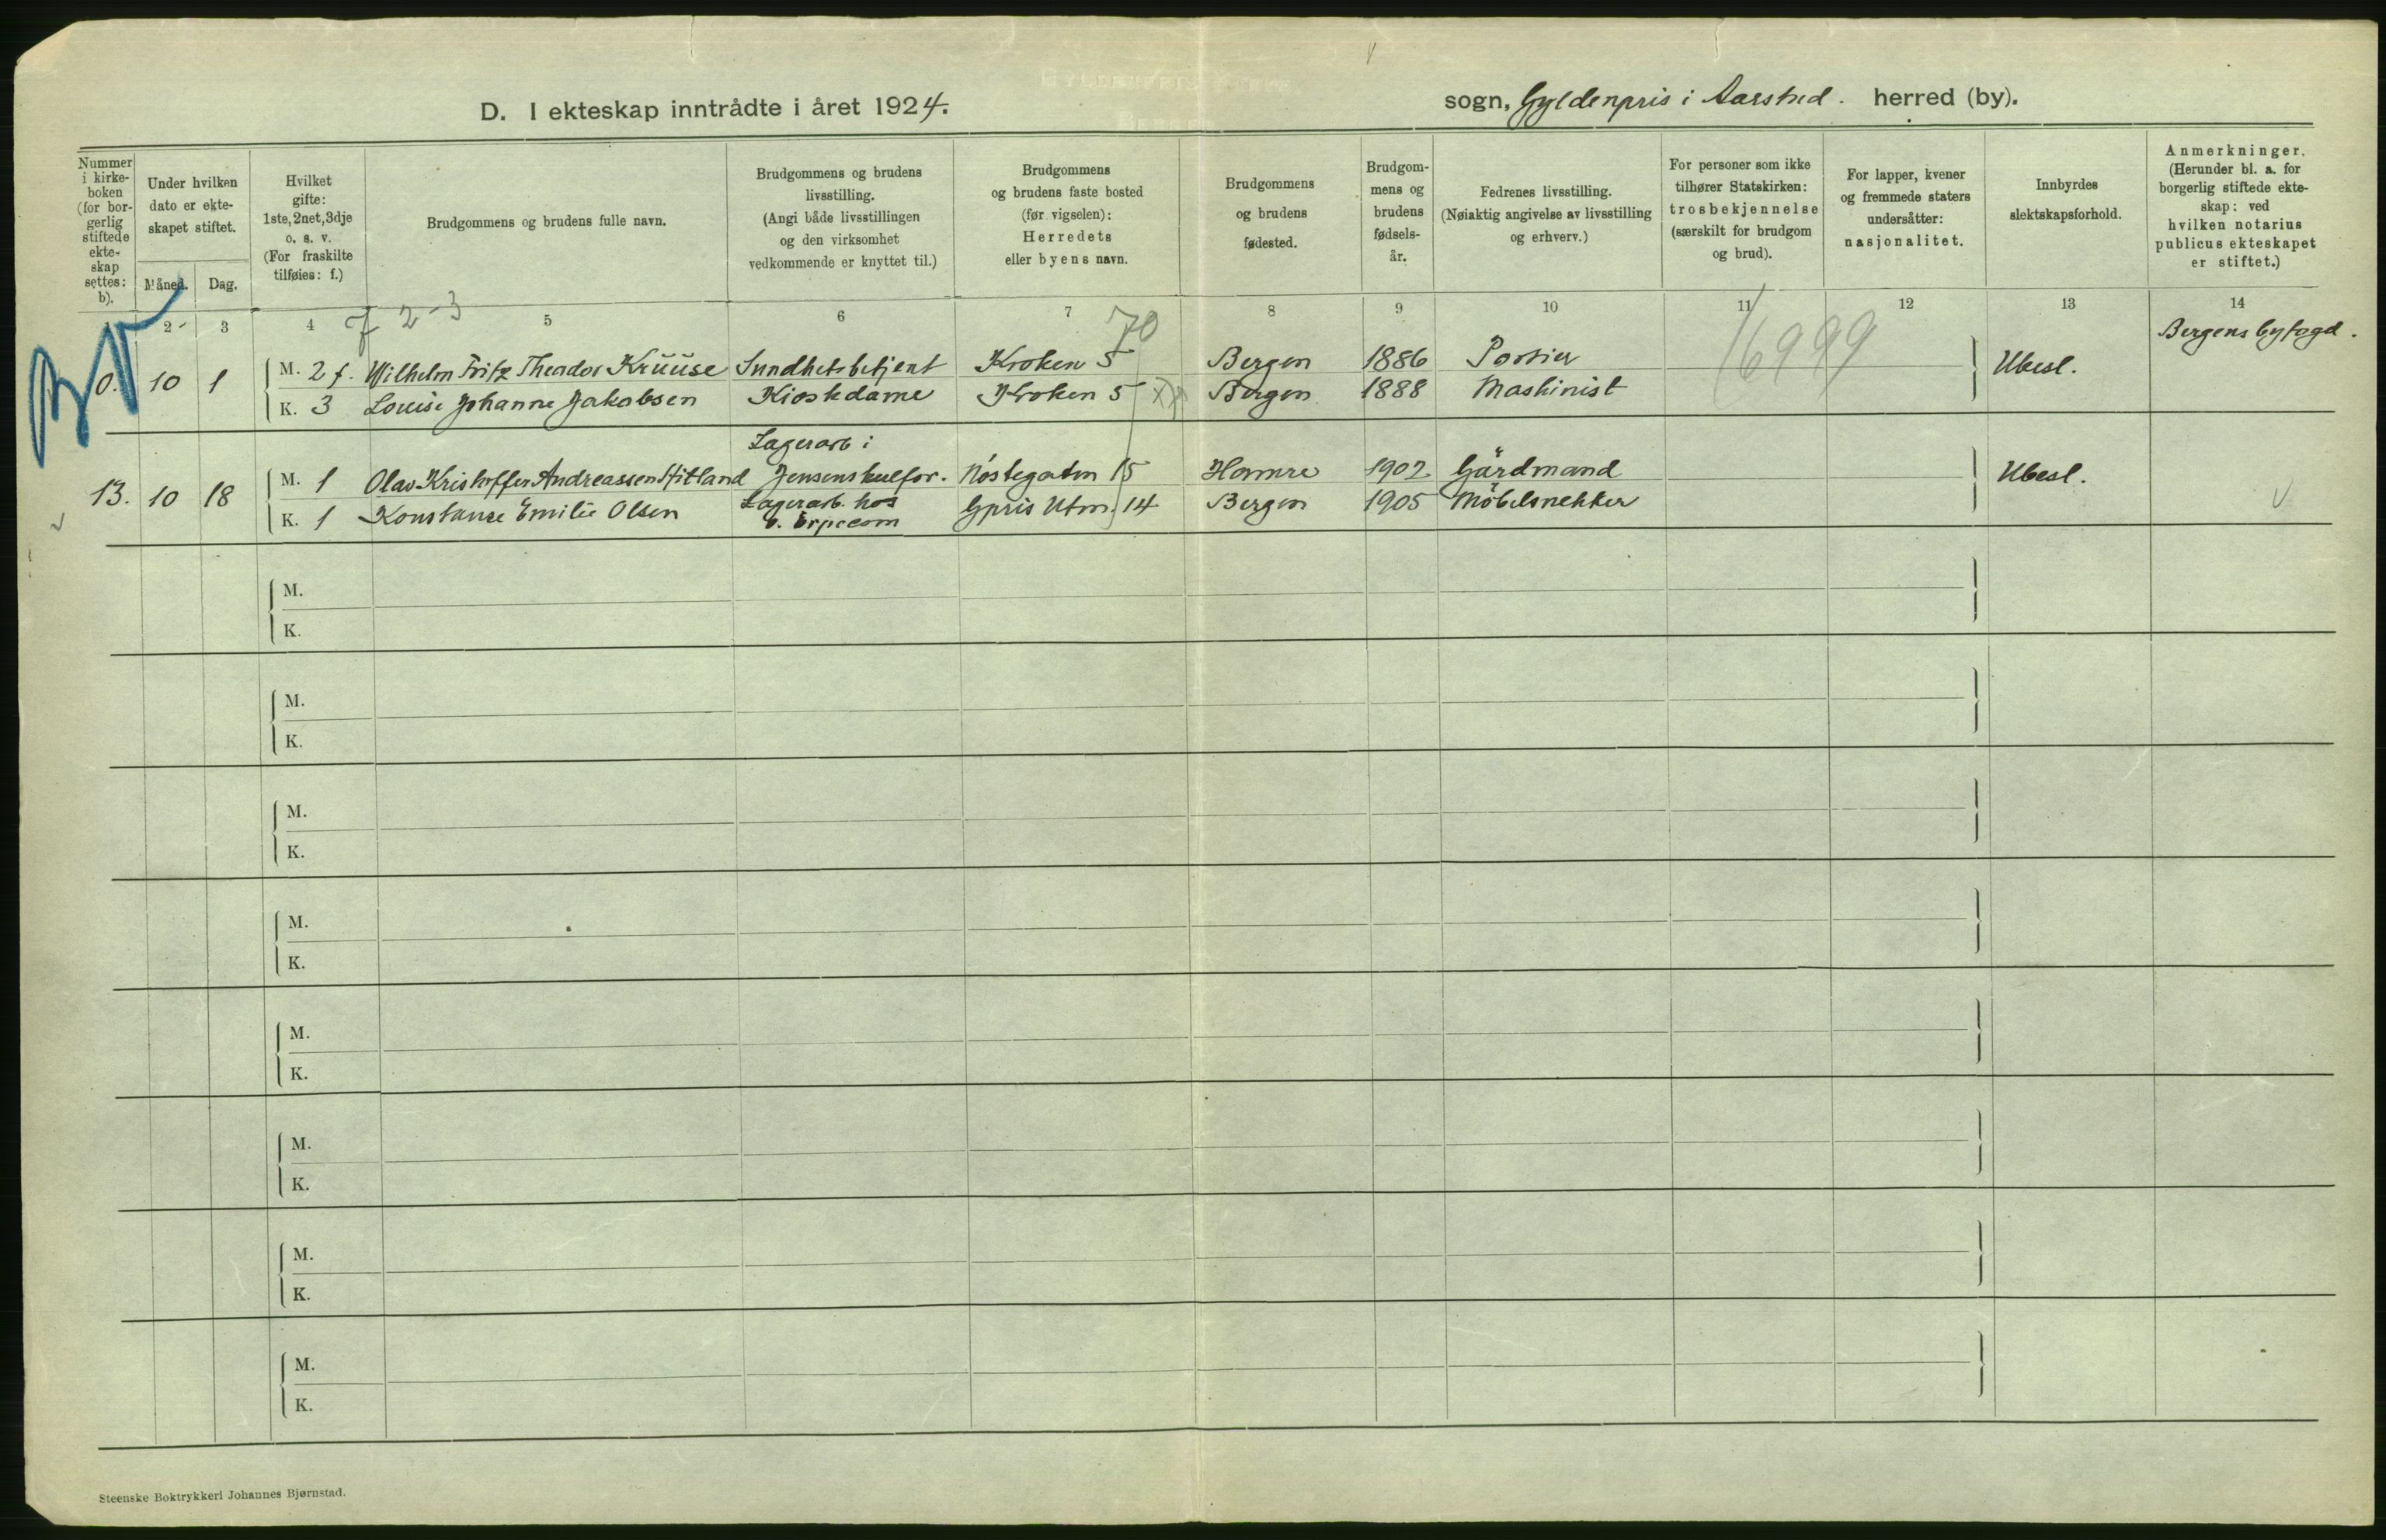 D. I ekteskap inntrådte i året 1924.
sogn, Gyldenpris i Aarstad. herred (by).
Nummer i kirke-boken (for bor-gerlig stiftede ekte-skap settes: b).
Under hvilken dato er ekte-skapet stiftet.
Måned. Dag.
Hvilket gifte: 1ste, 2net, 3dje o. s. v. (For fraskilte tilføies: f.)
Brudgommens og brudens fulle navn.
Brudgommens og brudens livsstilling. (Angi både livsstillingen og den virksomhet vedkommende er knyttet til.)
Brudgommens og brudens faste bosted (før vigselen): Herredets eller byens navn.
Brudgommens og brudens fødested.
Brudgom-mens og brudens fødsels-år.
Fedrenes livsstilling. (Nøiaktig angivelse av livsstilling og erhverv.)
For personer som ikke tilhører Statskirken: trosbekjennelse (særskilt for brudgom og brud).
For lapper, kvener og fremmede staters undersåtter: nasjonalitet.
Innbyrdes slektskapsforhold.
Anmerkninger. (Herunder bl. a. for borgerlig stiftede ekte-skap: ved hvilken notarius publicus ekteskapet er stiftet.)
2 3 4 5 6 7 8 9 10 11 12 13 14
7 2-3
70
16999
Bergens byfogd.
10 1 M. 2 f. Wilhelm Fritz Theodor Krüüse Sundhetsbetjent Kroken 5 Bergen 1886 Portier Ubesl.
K. 3 Louise Johanne Jakobsen Kioskdame Kroken 5 Bergen 1888 Maskinist
Lagerarb i
13. 10 18 M. 1 Olav Kristoffer Andreassen Hitland Jensens kulfor. Nöstegaten 15 Hamre 1902 Gårdmand Ubesl.
K. 1 Konstanse Emilie Olsen Lagerarb. hos Gpris Utm. 14 Bergen 1905 Möbelsnekker
v. Erpecom
M.
K.
M.
K.
M.
K.
M.
K.
M.
K.
M.
K.
M.
K.
M.
K.
Steenske Boktrykkeri Johannes Bjørnstad.